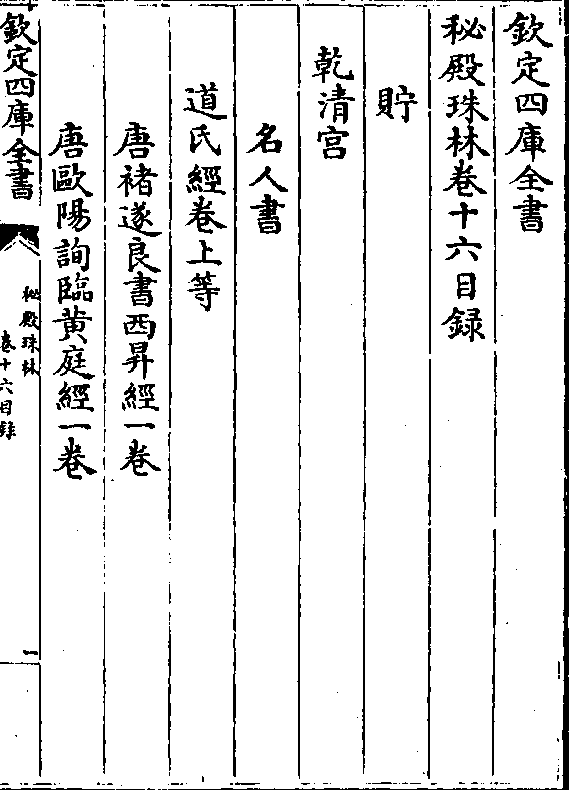 欽定四庫全書
秘殿珠林卷十六目録
貯
乾清宫
名人書
道氏經卷上等
唐褚遂良書西昇經一卷
唐歐陽詢臨黄庭經一卷
欽定四庫全書
秘殿珠林
卷十六目録
一